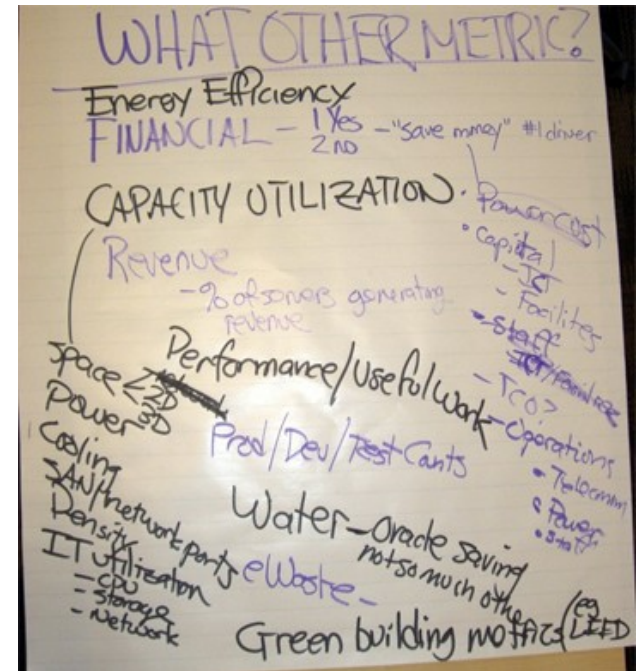 WHAT OTHER METRIC?
Energy Efficiency
FINANCIAL - 1 Yes - "save money" #1 driver
2 no
CAPACITY UTILIZATION
• Power cost
• Capital
- ICT
- Facilites
• Staff
- TCO?
- Operations
• Telecomm
• Power
• Staff
Revenue
- % of servers generating
revenue
Performance/Useful Work
Prod/Dev/Test Counts
Space < 2D
3D
Power
Cooling
SAN/network ports
Density
IT Utilization
- CPU
- Storage
- Network
Water - Oracle saving
not so much other
eWaste -
Green building metrics (eg LEED